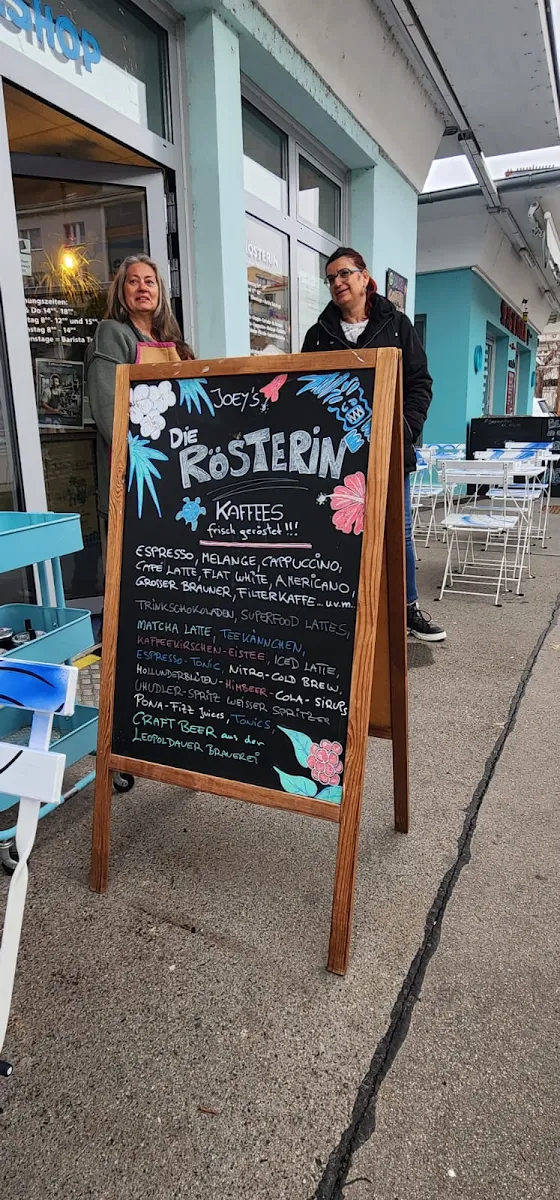 SHOP
RÖSTERIN
nungszeiten:
Do 14⁰⁰-18⁰⁰
stag = Barista
JOEY'S
DIE
RÖSTERIN
KAFFEES
frisch geröstet!!!
ESPRESSO, MELANGE, CAPPUCCINO,
CAFÉ LATTE, FLAT WHITE, AMERICANO,
GROSSER BRAUNER, FILTERKAFFE... u.v.m..
TRINKSCHOKOLADEN, SUPERFOOD LATTES,
MATCHA LATTE, TEEKÄNNCHEN,
KAFFEEKIRSCHEN-EISTEE, ICED LATTE,
ESPRESSO-TONIC, NITRO-COLD BREW,
HOLLUNDERBLÜTEN-HIMBEER-COLA-SIRUPS
UHUDLER-SPRITZ WEISSER SPRITZER
PONA-FIZZ JUICES, TONICS,
CRAFT BEER aus der
LEOPOLDAUER BRAUEREI